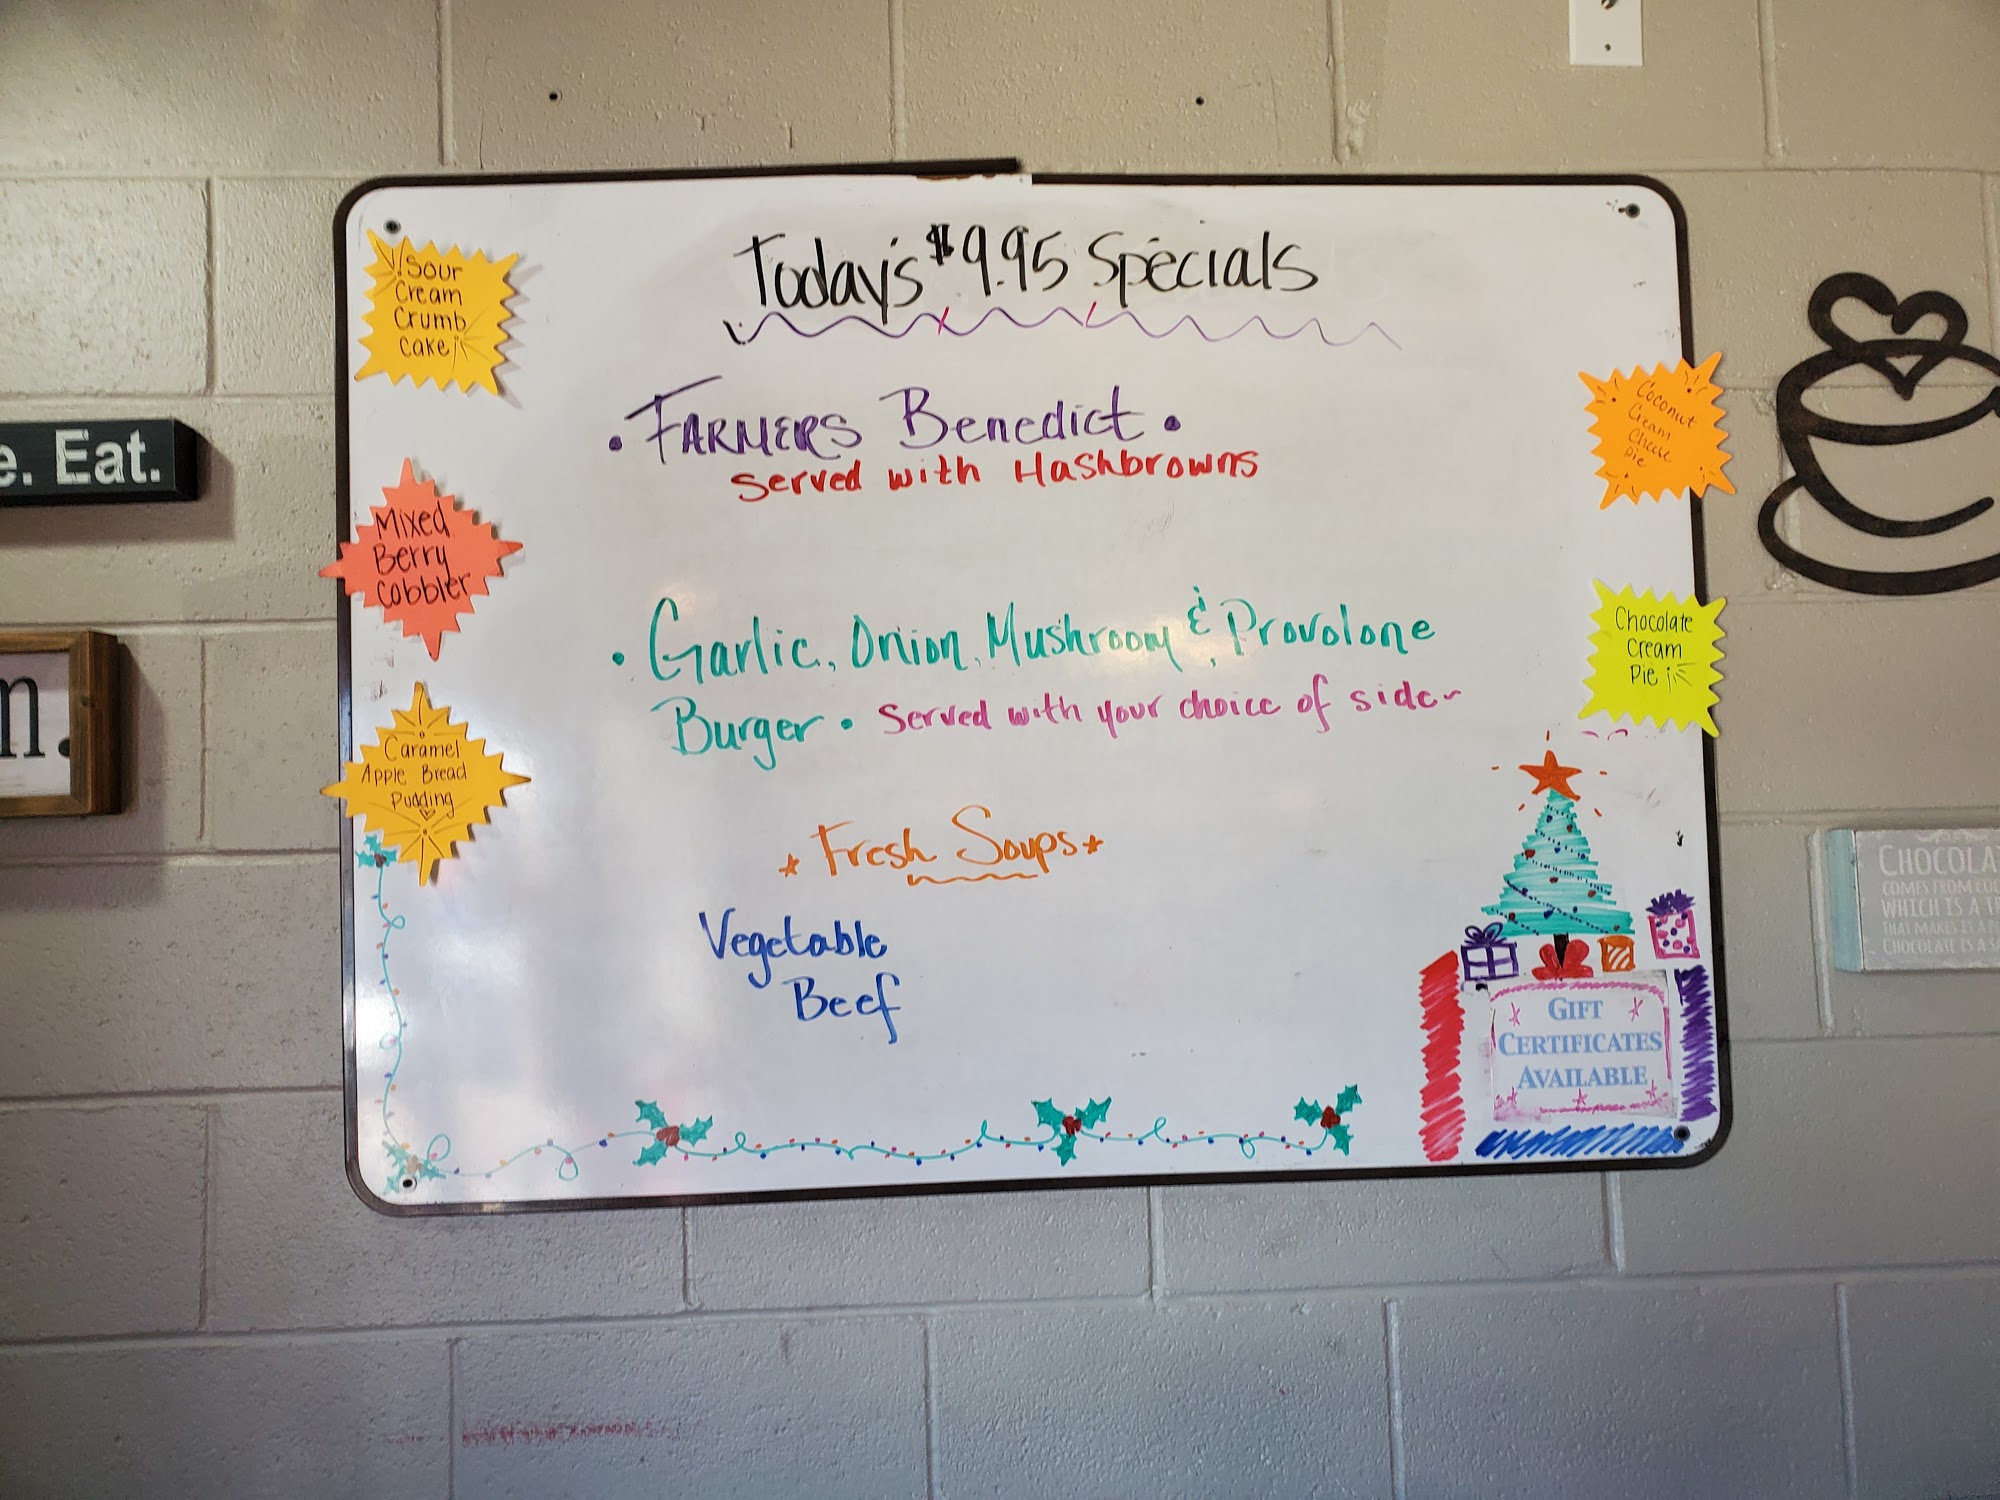 Today's $9.95 Specials
• FARMERS Benedict •
Served with Hashbrowns
• Garlic, Onion, Mushroom & Provolone
Burger • Served with your choice of side~
Fresh Soups
Vegetable
Beef
Sour
Cream
Crumb
Cake
Mixed
Berry
Cobbler
Caramel
Apple Bread
Pudding
Coconut
Cream
Cheese
Pie
Chocolate
Cream
Pie
GIFT
CERTIFICATES
AVAILABLE
e. Eat.
n.
CHOCOLA
COMES FROM COC
WHICH IS A T
THAT MAKES IT A
CHOCOLATE IS A SA